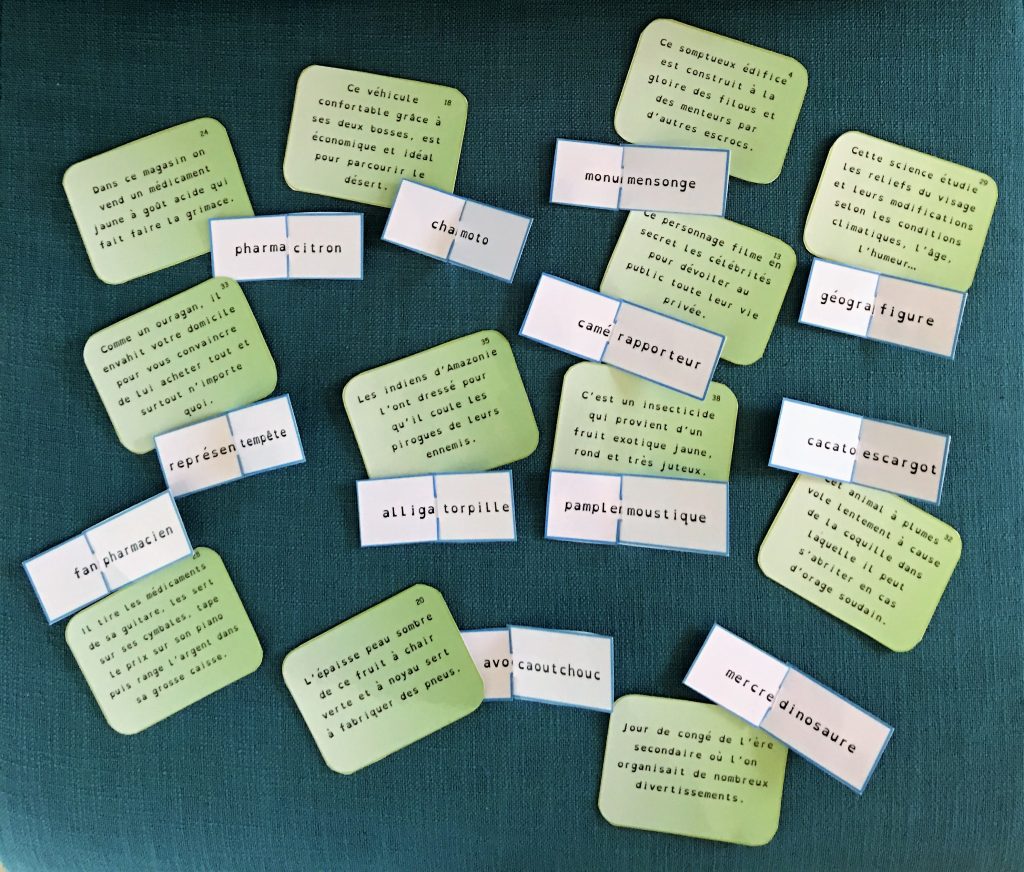 24
Dans ce magasin on
vend un médicament
jaune à goût acide qui
fait faire la grimace.
pharma citron
18
Ce véhicule
confortable grâce à
ses deux bosses, est
économique et idéal
pour parcourir le
désert.
cha moto
4
Ce somptueux édifice
est construit à la
gloire des filous et
des menteurs par
d'autres escrocs.
monu mensonge
29
Cette science étudie
les reliefs du visage
et leurs modifications
selon les conditions
climatiques, l'âge,
l'humeur…
géogra figure
13
Ce personnage filme en
secret les célébrités
pour dévoiler au
public toute leur vie
privée.
camé rapporteur
33
Comme un ouragan, il
envahit votre domicile
pour vous convaincre
de lui acheter tout et
surtout n'importe
quoi.
représen tempête
35
Les indiens d'Amazonie
l'ont dressé pour
qu'il coule les
pirogues de leurs
ennemis.
alliga torpille
38
C'est un insecticide
qui provient d'un
fruit exotique jaune,
rond et très juteux.
pample moustique
cacato escargot
32
Cet animal à plumes
vole lentement à cause
de la coquille dans
laquelle il peut
s'abriter en cas
d'orage soudain.
fan pharmacien
Il tire les médicaments
de sa guitare, les sert
sur ses cymbales, tape
le prix sur son piano
puis range l'argent dans
sa grosse caisse.
20
L'épaisse peau sombre
de ce fruit à chair
verte et à noyau sert
à fabriquer des pneus.
avo caoutchouc
mercre dinosaure
Jour de congé de l'ère
secondaire où l'on
organisait de nombreux
divertissements.